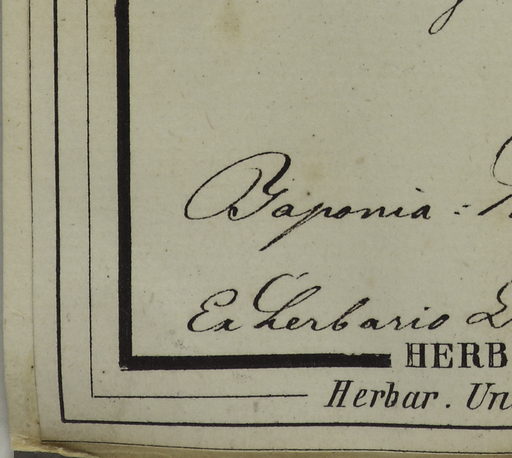 Japonia :
Ex herbario
HERB
Herbar. Un